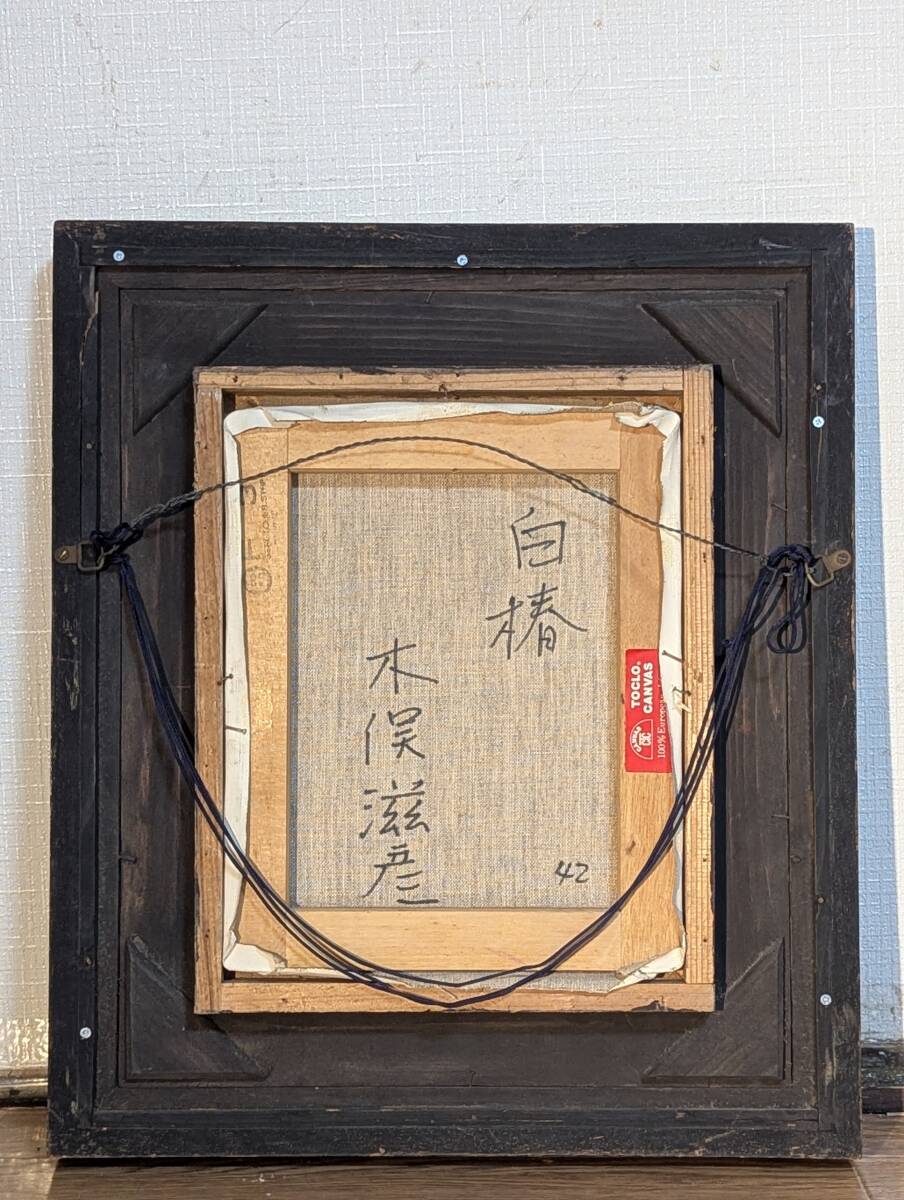 白椿
木俣滋彦
42
TOCLO.
CANVAS
CTC
100% Europe